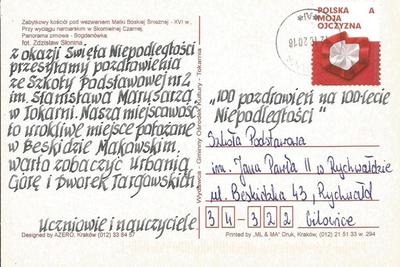 Zabytkowy kościół pod wezwaniem Matki Boskiej Śnieżnej - XVI w.,
Przy wyciągu narciarskim w Skomielnej Czarnej,
Panorama zimowa - Bogdanówka;
fot. Zdzisław Słonina
z okazji Święta Niepodległości
przesyłamy pozdrowienia
ze Szkoły Podstawowej nr 2
im. Stanisława Marusarza
w Tokarni. Nasza miejscowość
to urokliwe miejsce położone
w Beskidzie Makowskim.
Warto zobaczyć Urbanią
Górę i Dworek Targowskich
Uczniowie i nauczyciele
Designed by AZERO, Kraków (012) 33 84 57
Wydawca - Gminny Ośrodek Kultury - Tokarnia
POLSKA A
MOJA
OJCZYZNA
"100 pozdrowień na 100-lecie
Niepodległości"
Szkoła Podstawowa
im. Jana Pawła II w Rychwałdzie
ul. Beskidzka 43, Rychwałd
34-322 Gilowice
Printed by "ML & MA" Druk, Kraków, (012) 21 51 33 w. 294